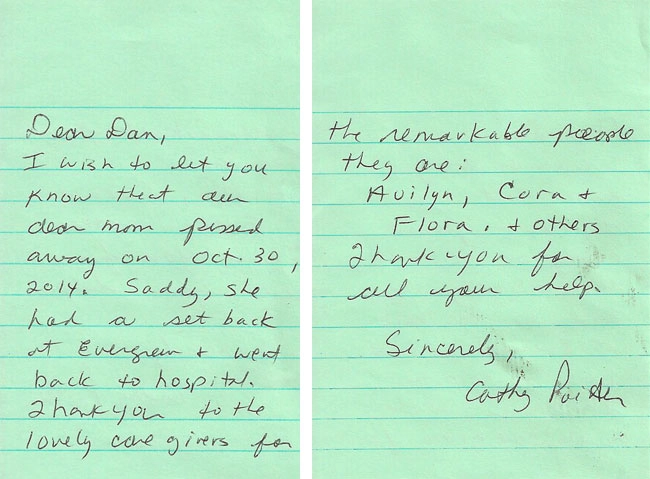 Dear Dan,
I wish to let you
know that our
dear mom passed
away on Oct. 30,
2014. Saddy, she
had a set back
at Evergreen & went
back to hospital.
Thank you to the
lovely care givers for
the remarkable peeople
they are:
Avilyn, Cora &
Flora. & others
Thank-you for
all your help.
Sincerely,
Cathy